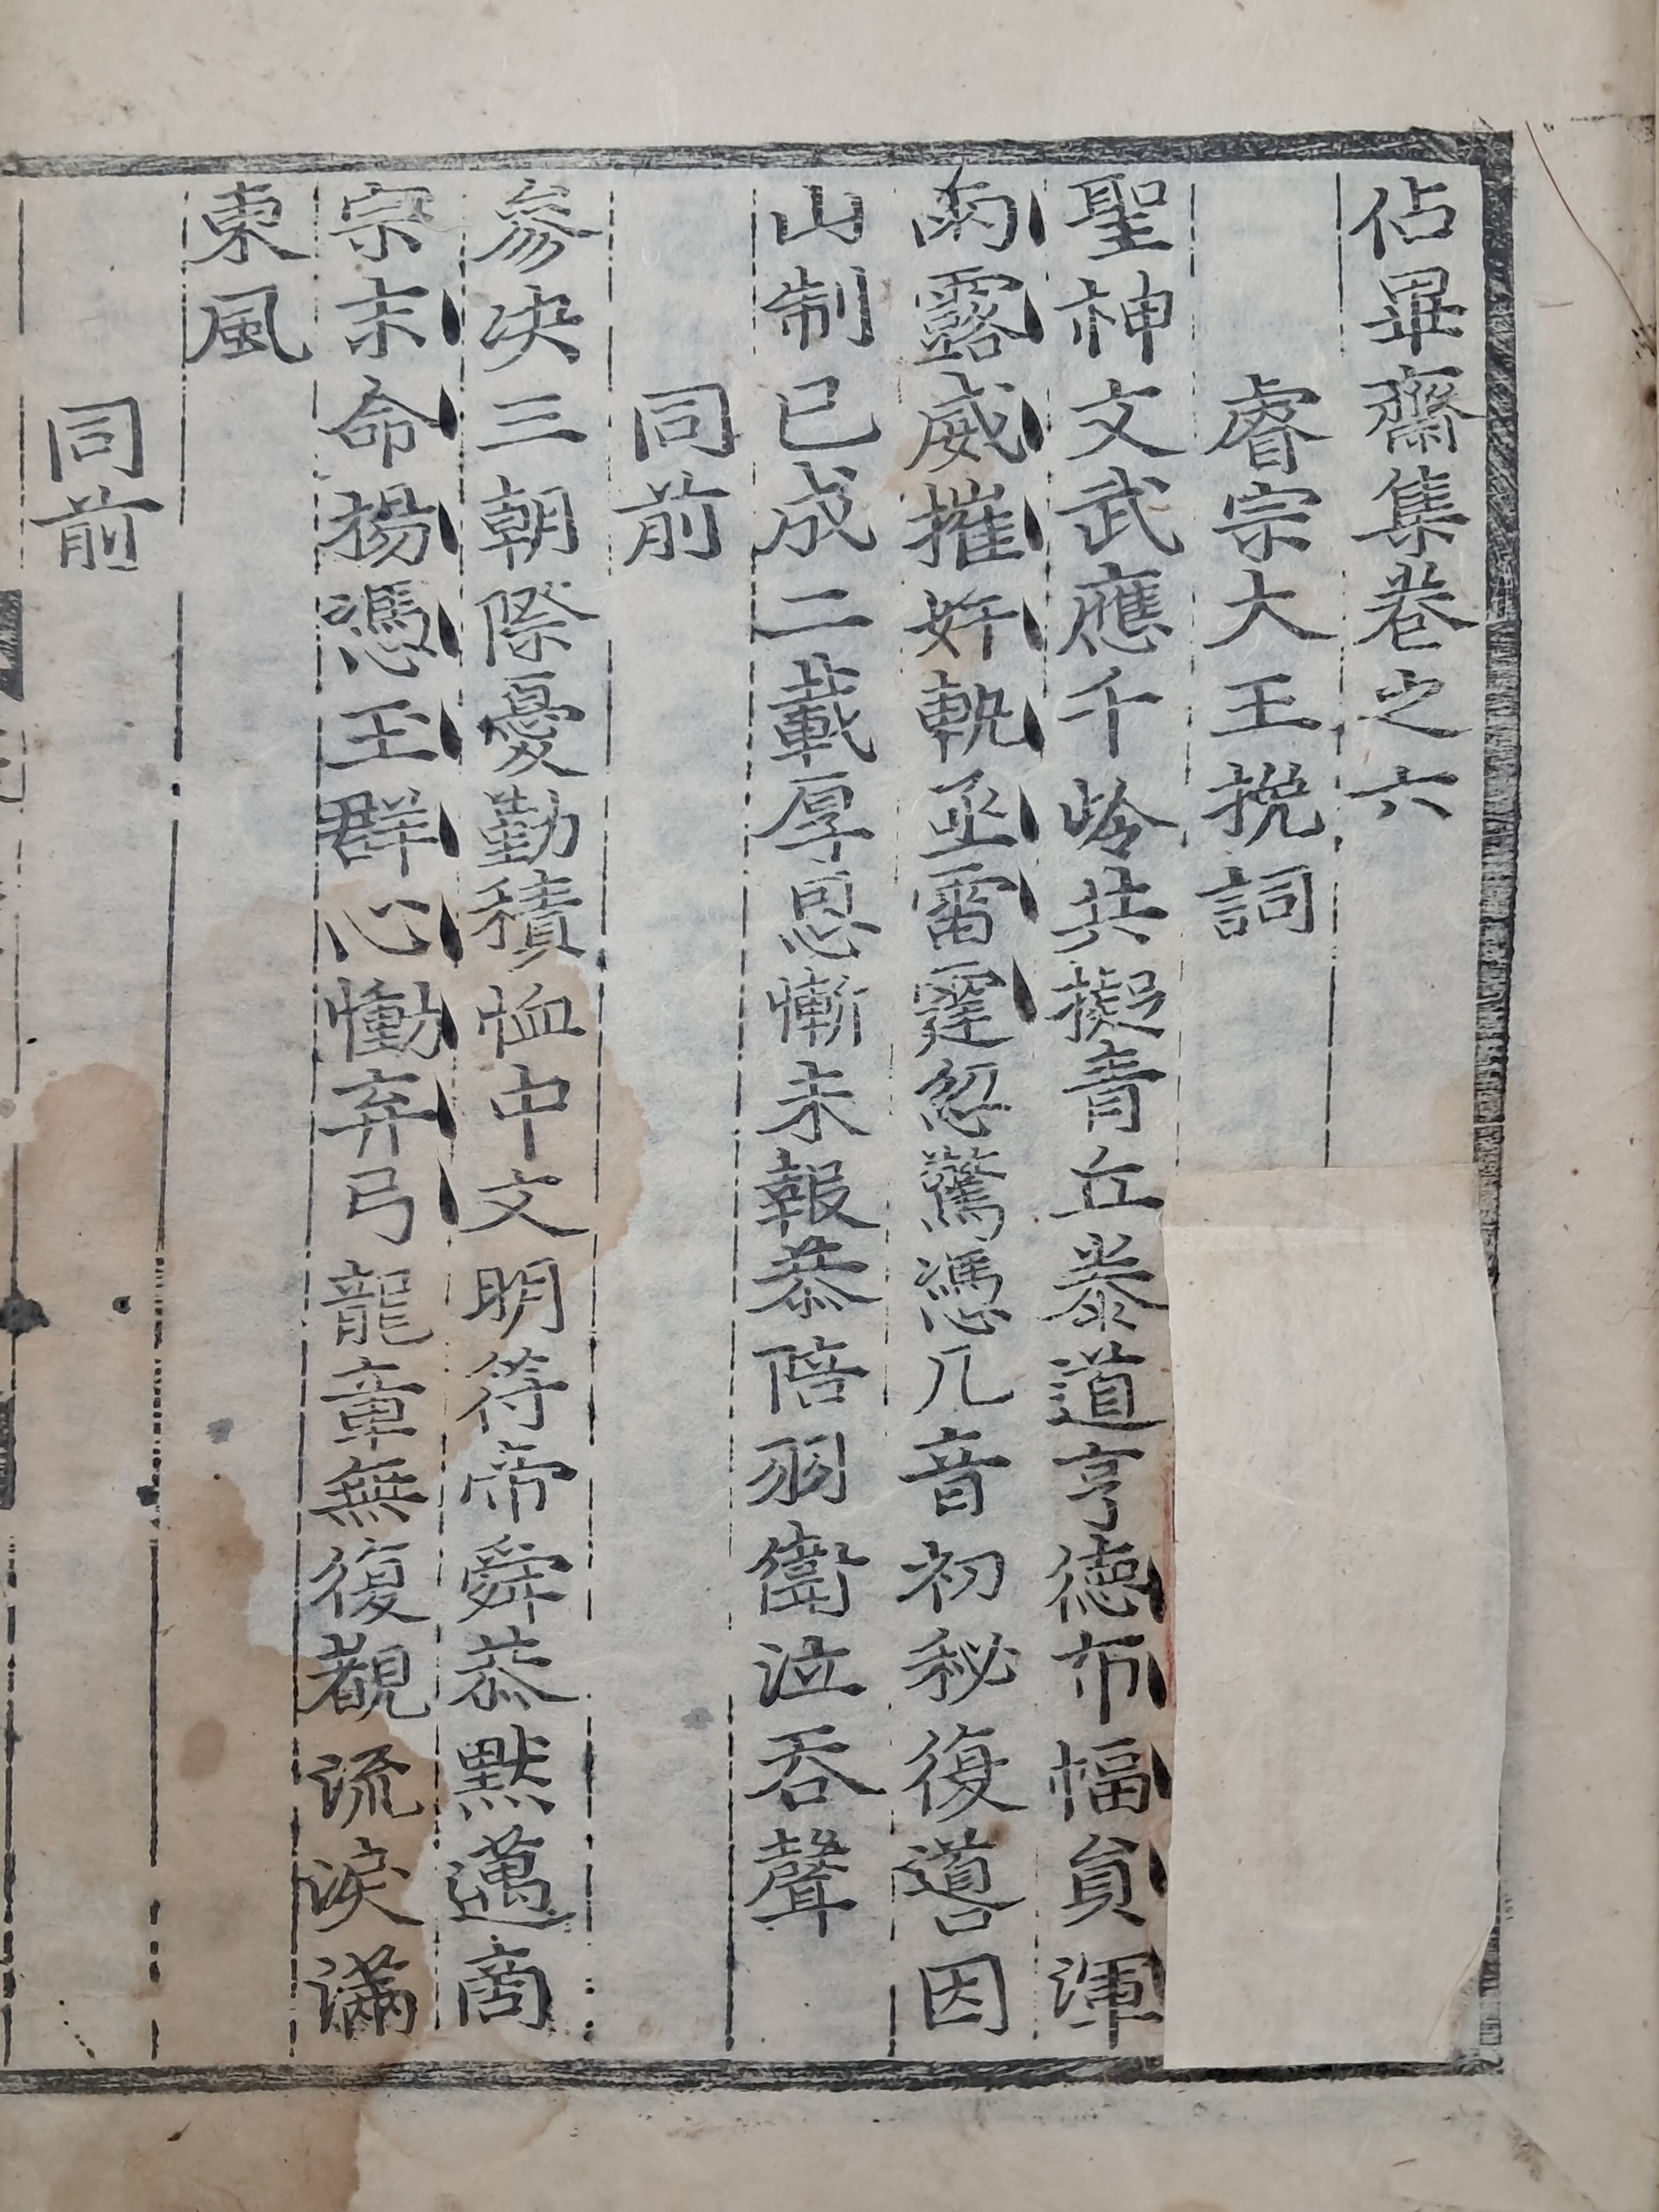 佔畢齋集卷之六
睿宗大王挽詞
聖神文武應千岭共擬青丘泰道亨德布幅員渾
雨露威摧奸軌亟雷霆忽驚憑几音初秘復噵因
山制已成二載厚恩慚未報恭陪羽衛泣吞聲
同前
參决三朝際憂勤積恤中文明符帝舜恭默邁商
宗末命揚憑玉群心慟弃弓龍章無復覩流淚滿
東風
同前